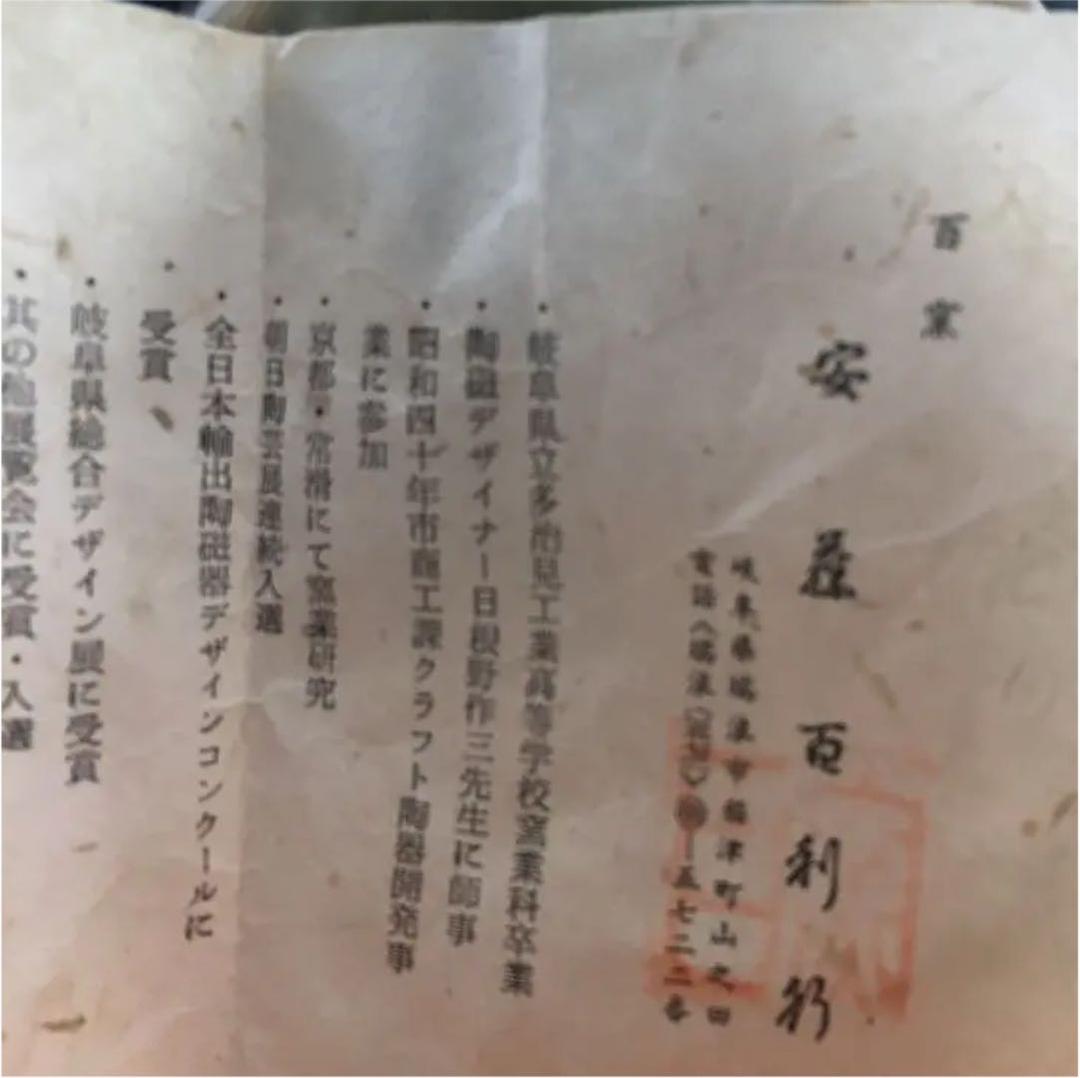 百窯
安藤百利行
岐阜県瑞浪市稲津町山之田
電話(瑞浪 五七二二番
・岐阜県立多治見工業高等学校窯業科卒業
・陶磁デザイナー日根野作三先生に師事
・昭和四十年市商工課クラフト陶器開発事
業に参加
・京都・常滑にて窯業研究
・朝日陶芸展連続入選
・全日本輸出陶磁器デザインコンクールに
・受賞、
・岐阜県総合デザイン展に受賞
・其の他展覧会に受賞・入選